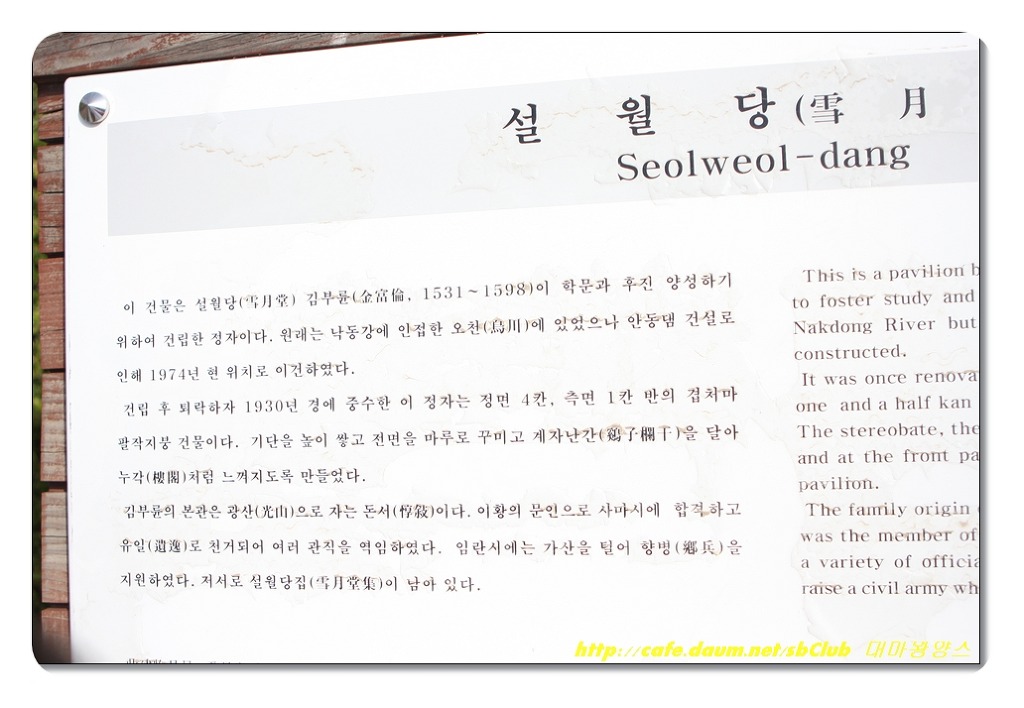 설 월 당 (雪 月
Seolweol-dang
이 건물은 설월당(雪月堂) 김부륜(金富倫, 1531~1598)이 학문과 후진 양성하기
위하여 건립한 정자이다. 원래는 낙동강에 인접한 오천(烏川)에 있었으나 안동댐 건설로
인해 1974년 현 위치로 이건하였다.
건립 후 퇴락하자 1930년 경에 중수한 이 정자는 정면 4칸, 측면 1칸 반의 겹처마
팔작지붕 건물이다. 기단을 높이 쌓고 전면을 마루로 꾸미고 계자난간(鷄子欄干)을 달아
누각(樓閣)처럼 느껴지도록 만들었다.
김부륜의 본관은 광산(光山)으로 자는 돈서(惇敍)이다. 이황의 문인으로 사마시에 합격하고
유일(遺逸)로 천거되어 여러 관직을 역임하였다. 임란시에는 가산을 털어 향병(鄕兵)을
지원하였다. 저서로 설월당집(雪月堂集)이 남아 있다.
This is a pavilion b
to foster study and
Nakdong River but
constructed.
It was once renova
one and a half kan
The stereobate, the
and at the front pa
pavilion.
The family origin
was the member of
a variety of officia
raise a civil army wh
http://cafe.daum.net/sbClub 대마왕양스